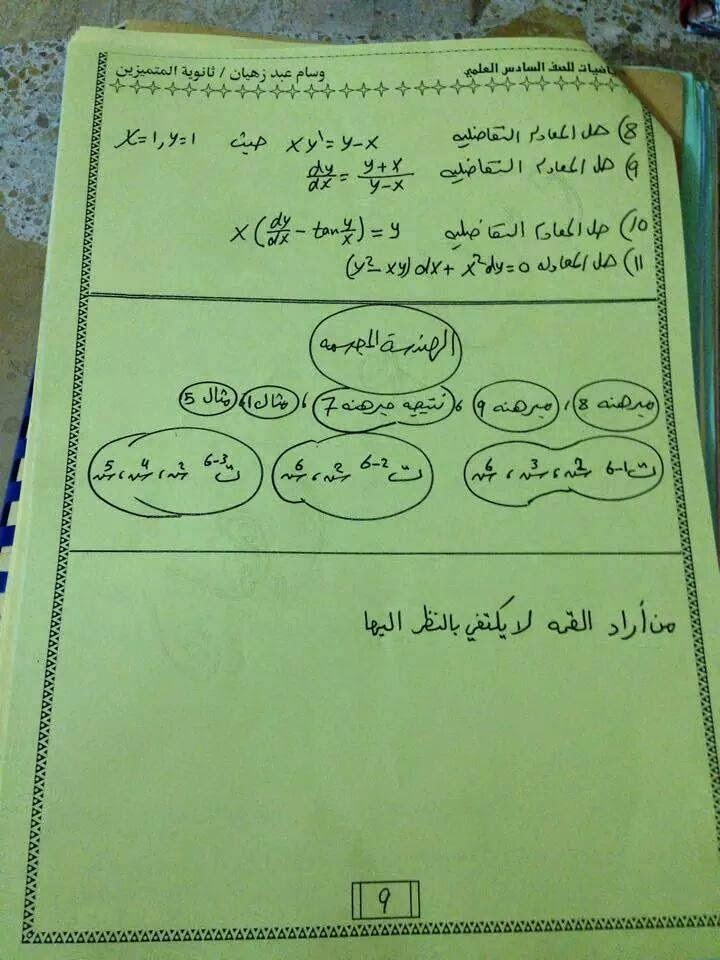 للصف السادس العلمي وسام عبد زهيان / ثانوية المتميزين
8) حل المعادلة التفاضليه xy' = y-x حيث x=1, y=1
9) حل المعادلة التفاضليه dy/dx = (y+x)/(y-x)
10) حل المعادلة التفاضليه x(dy/dx - tan y/x) = y
11) حل المعادله (y²-xy)dx + x²dy = 0
الهندسة المجسمه
مبرهنه 8 ، مبرهنه 9 ، نتيجه مبرهنه 7 ، مثال 1، مثال 5
ت 6-1 س2، س3، س6 ت 6-2 س2، س6 ت 6-3 س2، س4، س5
من أراد القمه لا يكتفي بالنظر اليها
9